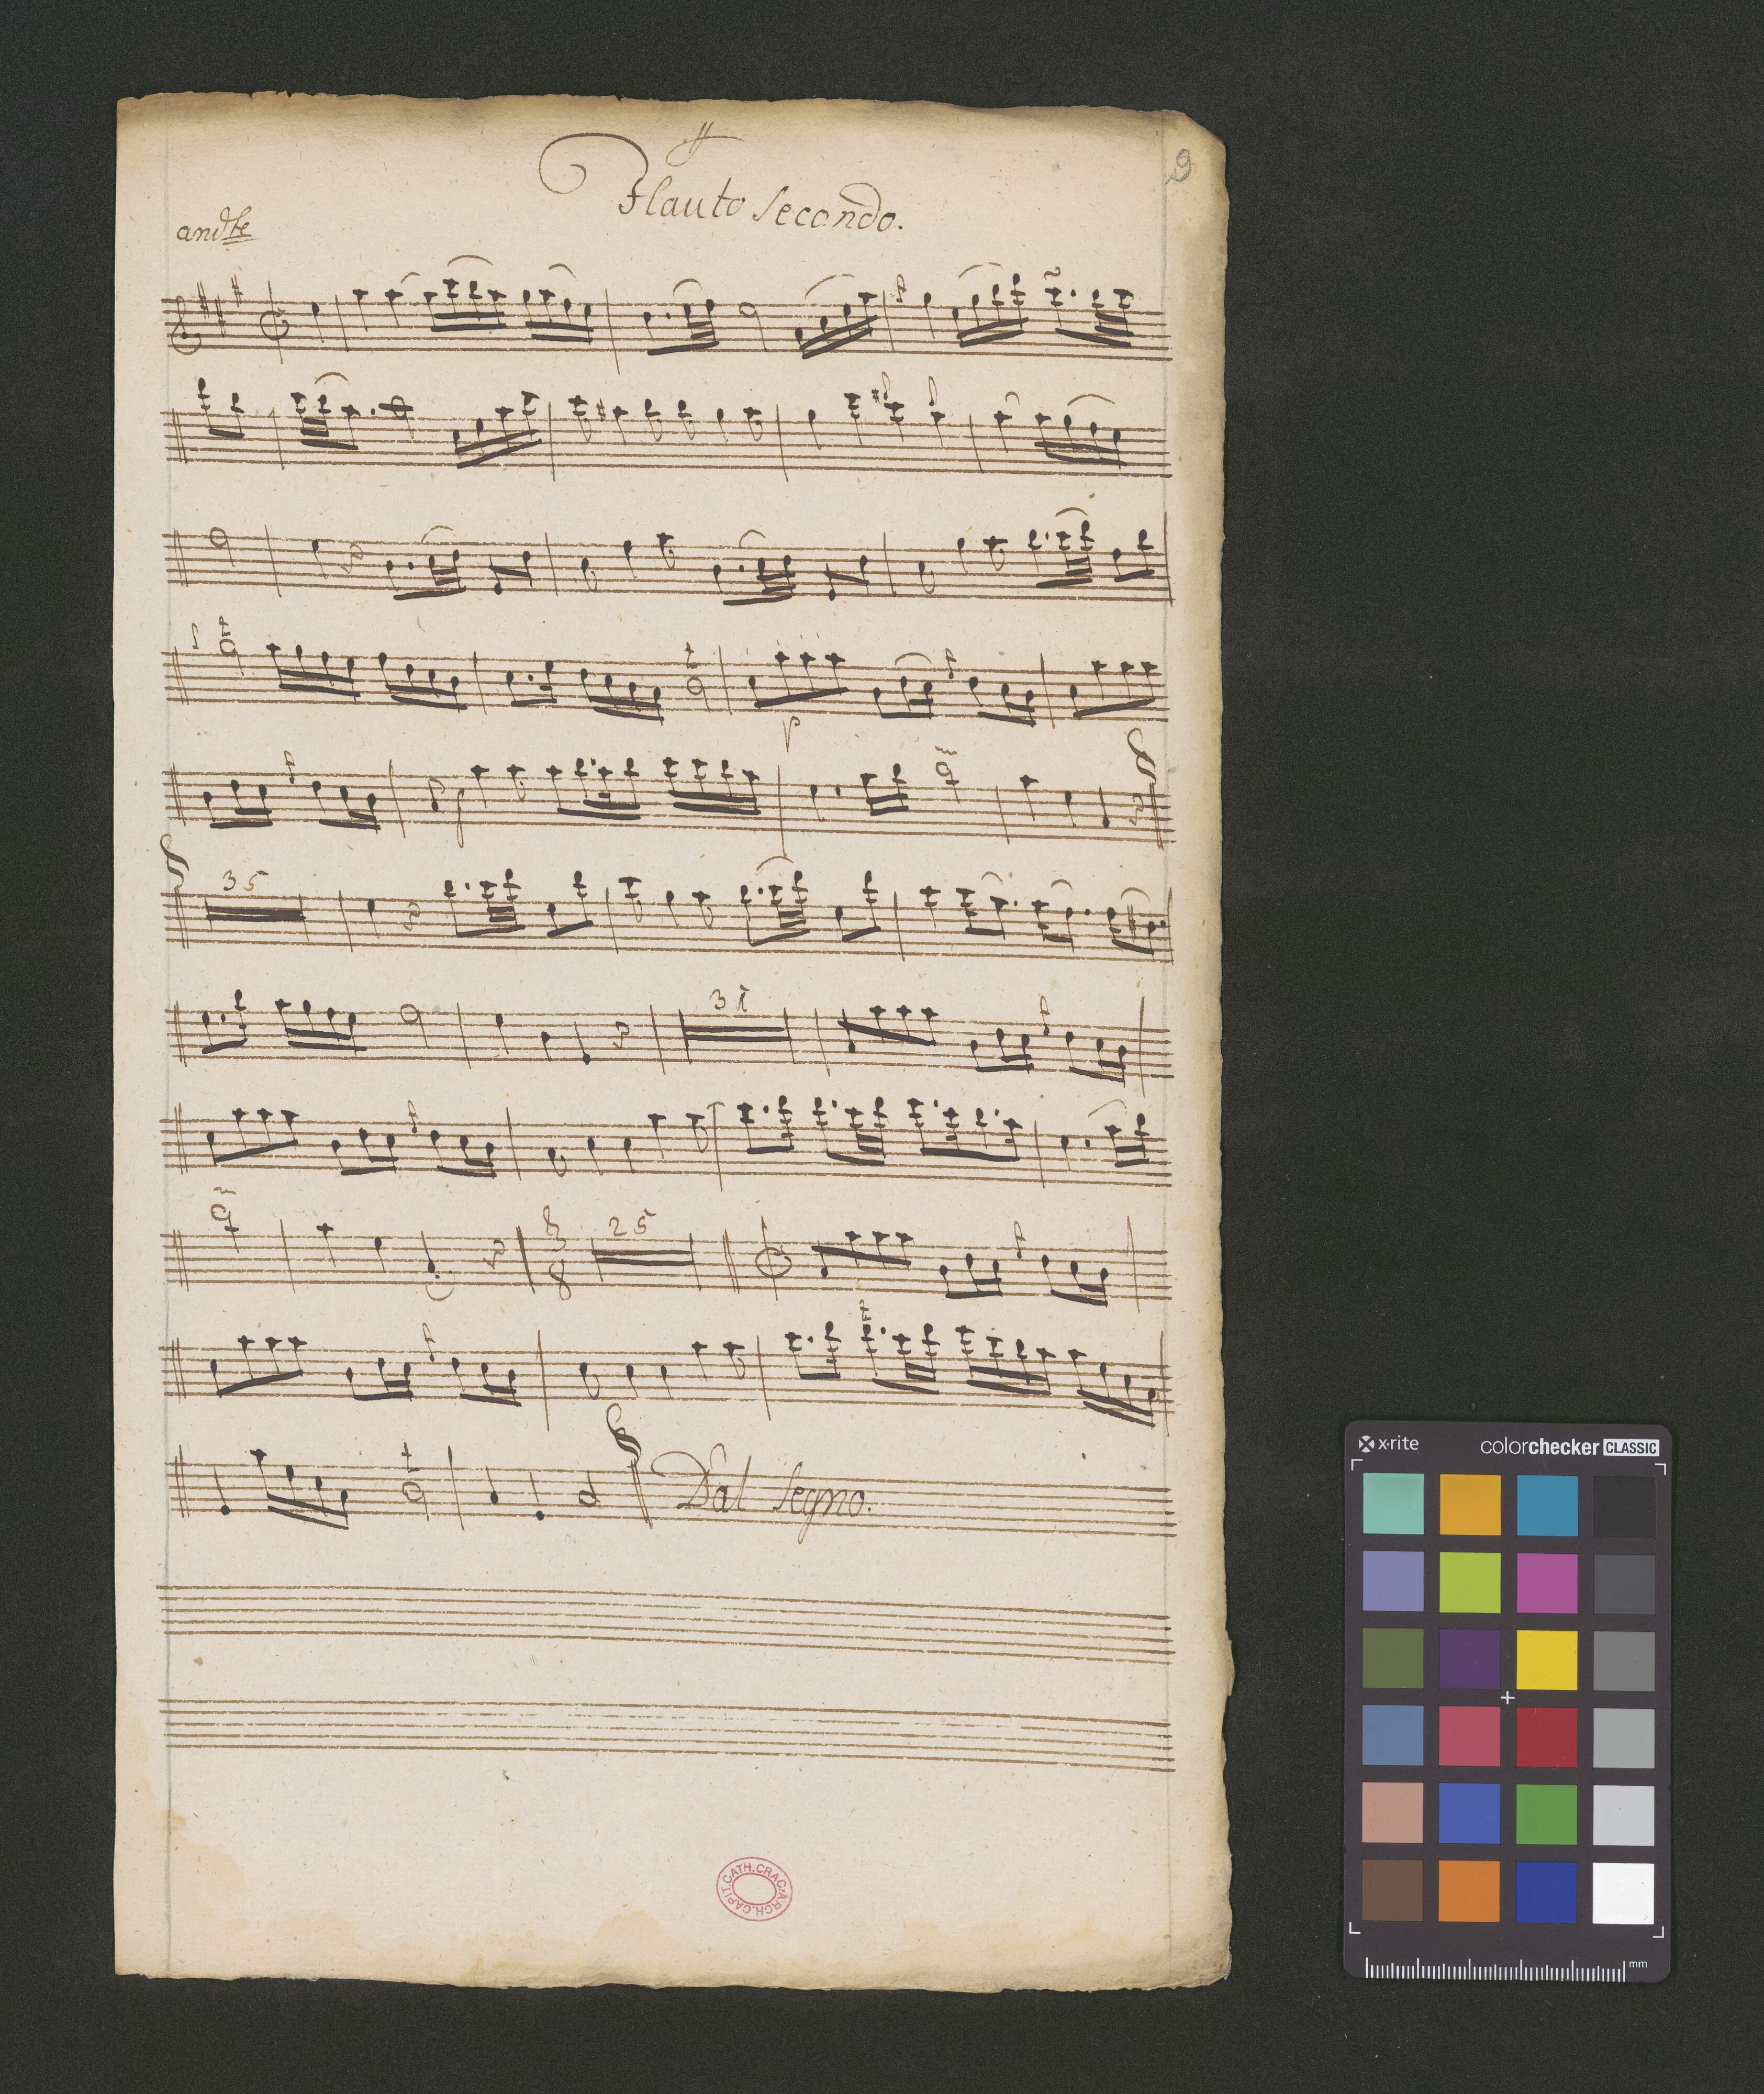 9
Flauto Secondo.
andte
p
f
35
31
3
8
25
Dal Segno.
CAPIT.CATH.CRAC.ARCH.
x-rite
colorchecker CLASSIC
mm